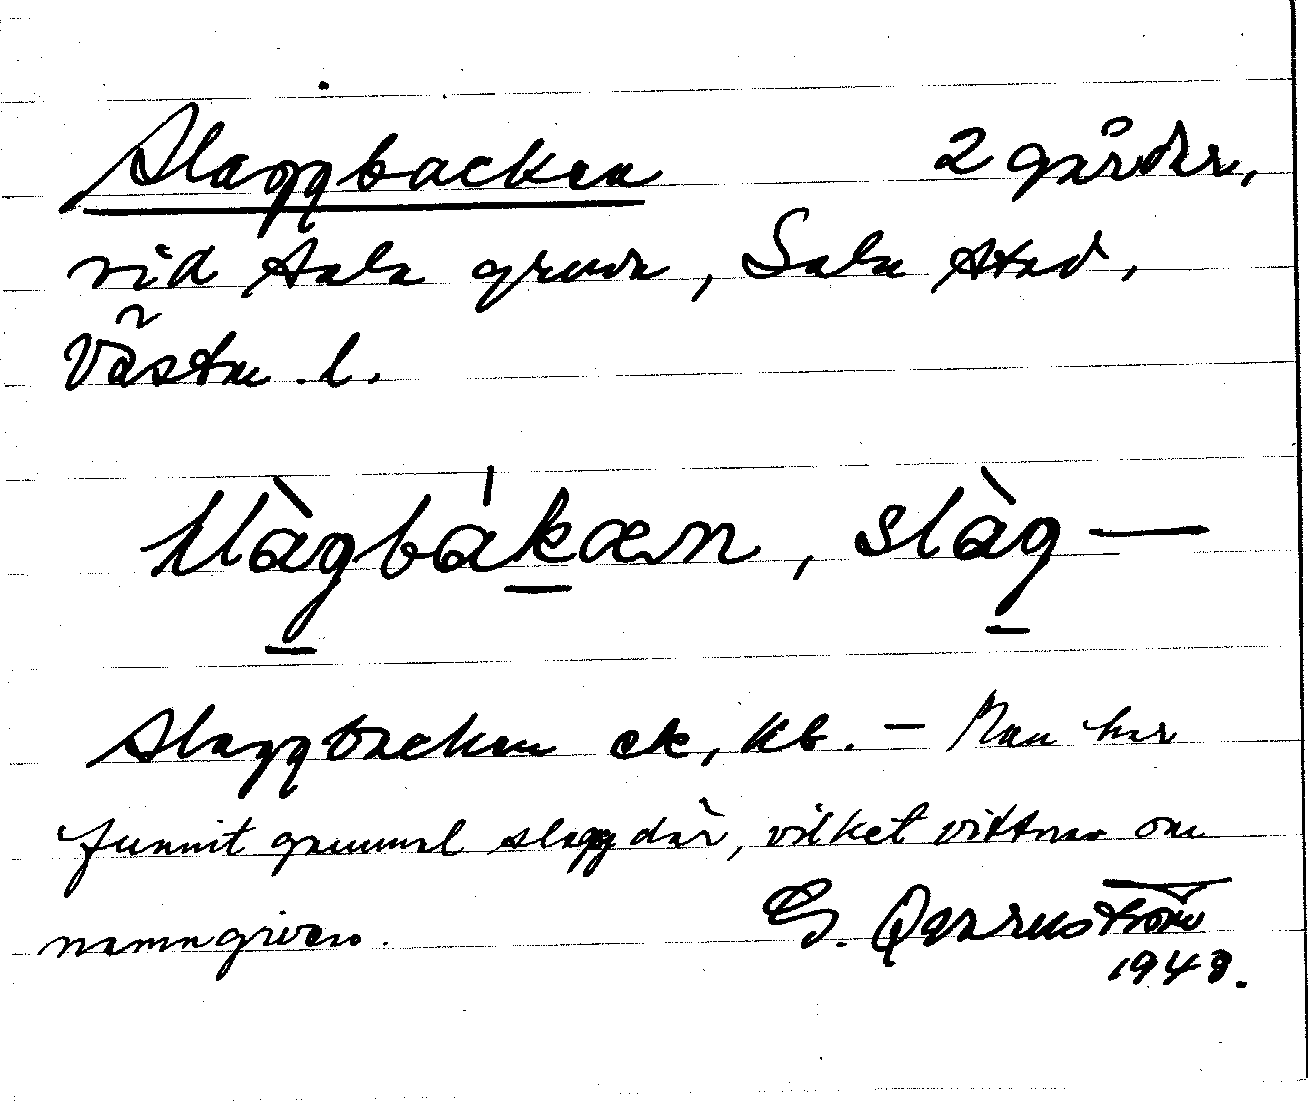 Slaggbacken 2 gårdar,
vid Sala gruva, Sala stad,
Västm. l.
slàgbákæn, slàg—
Slaggbacken ek, kb. — Man har
funnit gammal slagg där, vilket vittnar om
namngiven.
G. Qvarnström
1948.